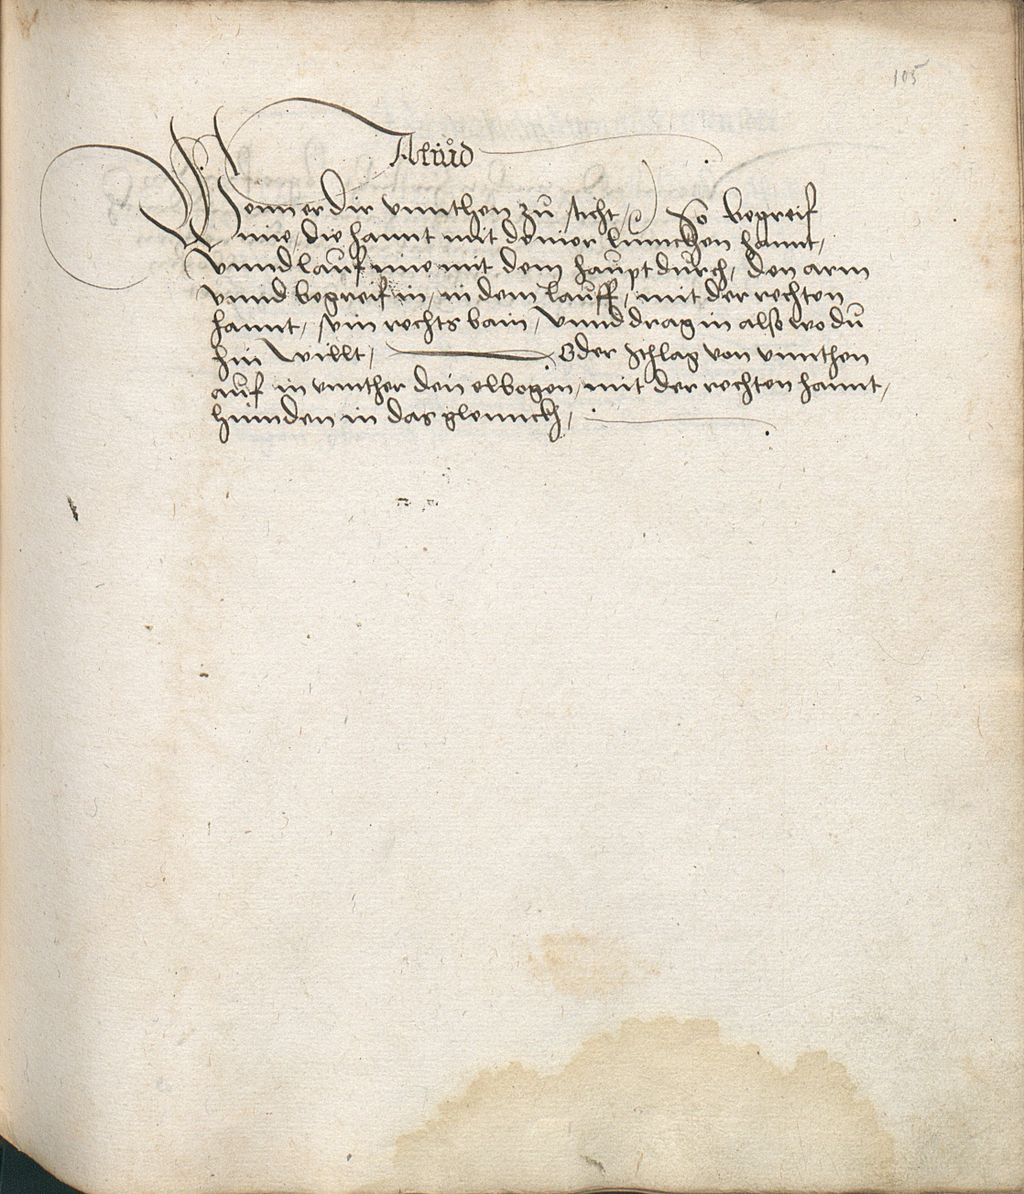 105
Aliud
Wenn er dir vnnthen zu sticht / So begreif
ime, die hannt mit deiner linnckhen hannt,
Vnnd lauf ime mit dem haupt durch, den arm
vnnd begreif in, in dem lauff, mit der rechten
hannt, sein rechts bain, Vnnd drag in also wo du
hin willt, Oder schlag von vnnthen
auf in vnnther den elbogen, mit der rechten hannt,
hinnden in das glennckh,